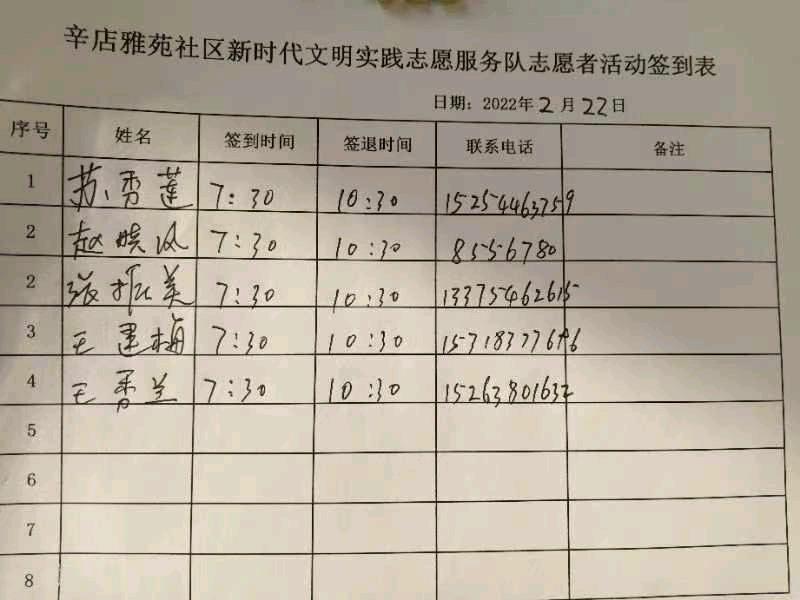 辛店雅苑社区新时代文明实践志愿服务队志愿者活动签到表
日期：2022年2月22日
序号 姓名 签到时间 签退时间 联系电话 备注
1 苏秀莲 7:30 10:30 15254463759
2 赵晓风 7:30 10:30 8556780
2 张振美 7:30 10:30 13375462615
3 王建梅 7:30 10:30 15318377696
4 王秀兰 7:30 10:30 15263801632
5
6
7
8